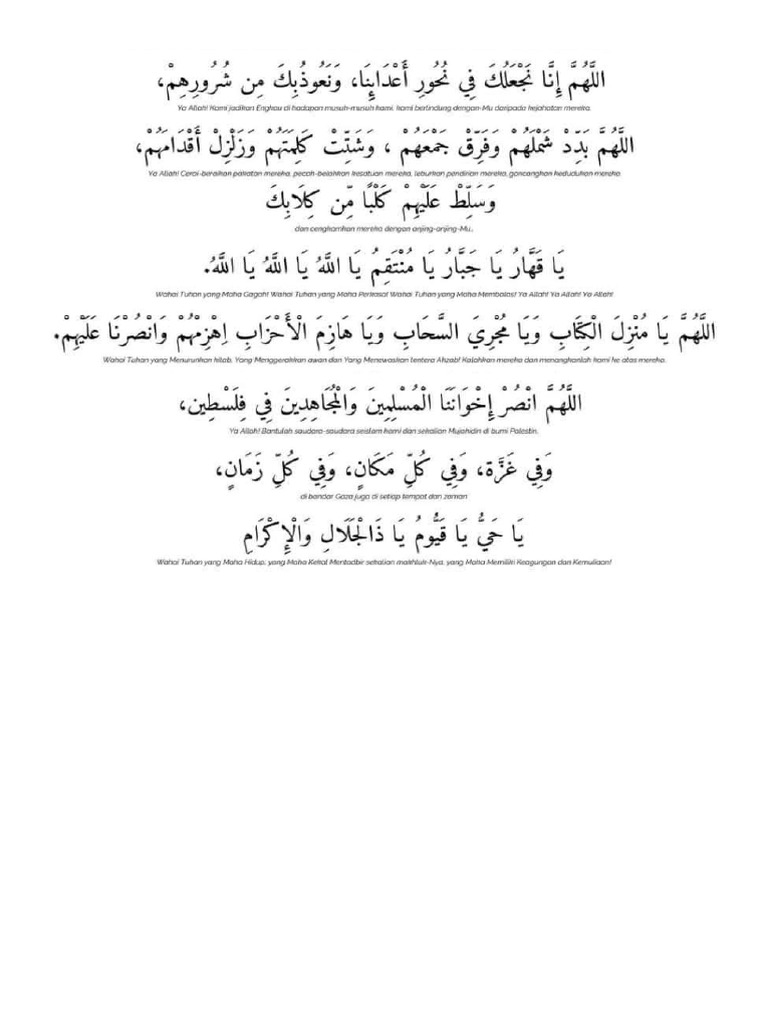 اللَّهُمَّ إِنَّا نَجْعَلُكَ فِي نُحُورِ أَعْدَائِنَا، وَنَعُوذُبِكَ مِن شُرُورِهِمْ،
Ya Allah! Kami jadikan Engkau di hadapan musuh-musuh kami, kami berlindung dengan-Mu daripada kejahatan mereka.
اللَّهُمَّ بَدِّدْ شَمْلَهُمْ وَفَرِّقْ جَمْعَهُمْ ، وَشَتِّتْ كَلِمَتَهُمْ وَزَلْزِلْ أَقْدَامَهُمْ،
Ya Allah! Cerai-beraikan pakatan mereka, pecah-belahkan kesatuan mereka, leburkan pendirian mereka, goncangkan kedudukan mereka.
وَسَلِّطْ عَلَيْهِمْ كَلْبًا مِّن كِلَابِكَ
dan cengkamkan mereka dengan anjing-anjing-Mu.
يَا قَهَّارُ يَا جَبَّارُ يَا مُنْتَقِمُ يَا اللَّهُ يَا اللَّهُ يَا اللَّهُ.
Wahai Tuhan yang Maha Gagah! Wahai Tuhan yang Maha Perkasa! Wahai Tuhan yang Maha Membalas! Ya Allah! Ya Allah! Ya Allah!
اللَّهُمَّ يَا مُنْزِلَ الْكِتَابِ وَيَا مُجْرِيَ السَّحَابِ وَيَا هَازِمَ الْأَحْزَابِ اِهْزِمْهُمْ وَانْصُرْنَا عَلَيْهِمْ.
Wahai Tuhan yang Menurunkan kitab, Yang Menggerakkan awan dan Yang Menewaskan tentera Ahzab! Kalahkan mereka dan menangkanlah kami ke atas mereka.
اللَّهُمَّ انْصُرْ إِخْوَانَنَا الْمُسْلِمِينَ وَالْمُجَاهِدِينَ فِي فِلَسْطِين،
Ya Allah! Bantulah saudara-saudara seislam kami dan sekalian Mujahidin di bumi Palestin.
وَفِي غَزَّة، وَفِي كُلِّ مَكَانٍ، وَفِي كُلِّ زَمَانٍ،
di bandar Gaza juga di setiap tempat dan zaman
يَا حَيُّ يَا قَيُّومُ يَا ذَالْجَلَالِ وَالْإِكْرَامِ
Wahai Tuhan yang Maha Hidup, yang Maha Kekal Mentadbir sekalian makhluk-Nya, yang Maha Memiliki Keagungan dan Kemuliaan!